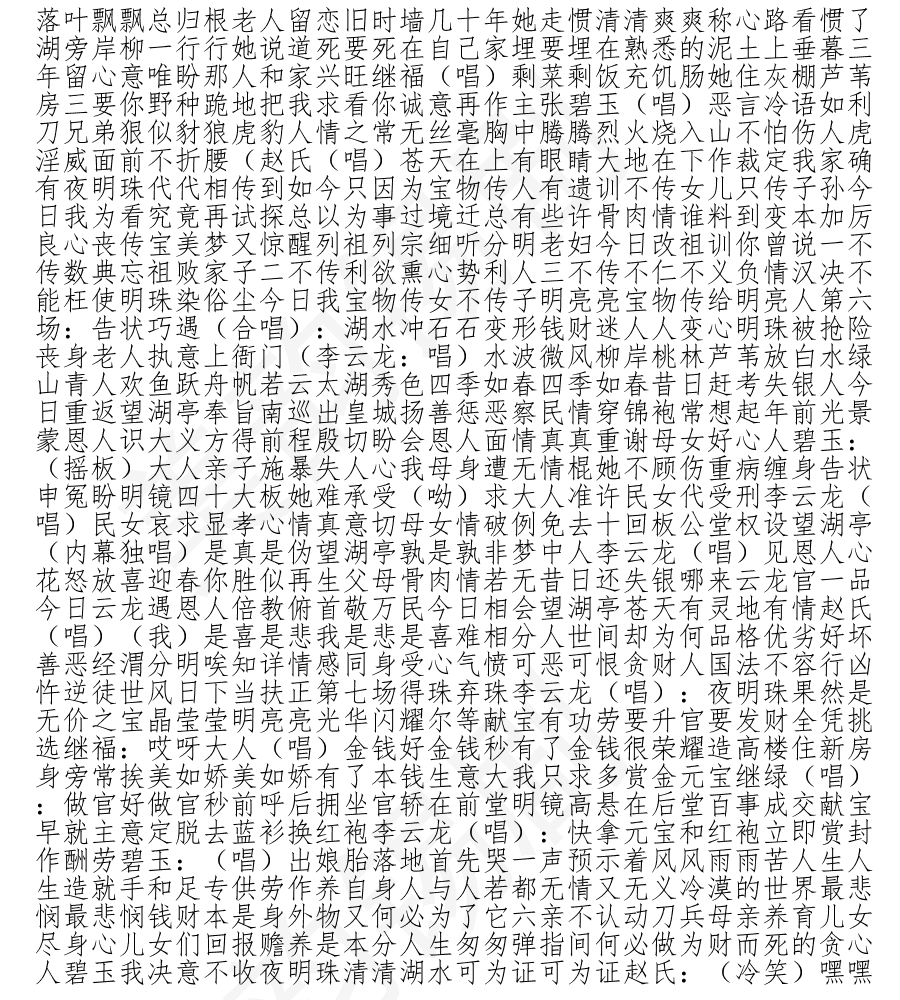 落叶飘飘总归根老人留恋旧时墙几十年她走惯清清爽爽称心路看惯了
湖旁岸柳一行行她说道死要死在自己家埋要埋在熟悉的泥土上垂暮三
年留心意唯盼那人和家兴旺继福（唱）剩菜剩饭充饥肠她住灰棚芦苇
房三要你野种跪地把我求看你诚意再作主张碧玉（唱）恶言冷语如利
刀兄弟狠似豺狼虎豹人情之常无丝毫胸中腾腾烈火烧入山不怕伤人虎
淫威面前不折腰（赵氏（唱）苍天在上有眼睛大地在下作裁定我家确
有夜明珠代代相传到如今只因为宝物传人有遗训不传女儿只传子孙今
日我为看究竟再试探总以为事过境迁总有些许骨肉情谁料到变本加厉
良心丧传宝美梦又惊醒列祖列宗细听分明老妇今日改祖训你曾说一不
传数典忘祖败家子二不传利欲熏心势利人三不传不仁不义负情汉决不
能枉使明珠染俗尘今日我宝物传女不传子明亮亮宝物传给明亮人第六
场：告状巧遇（合唱）：湖水冲石石变形钱财迷人人变心明珠被抢险
丧身老人执意上衙门（李云龙：唱）水波微风柳岸桃林芦苇放白水绿
山青人欢鱼跃舟帆若云太湖秀色四季如春四季如春昔日赶考失银人今
日重返望湖亭奉旨南巡出皇城扬善惩恶察民情穿锦袍常想起年前光景
蒙恩人识大义方得前程殷切盼会恩人面情真真重谢母女好心人碧玉：
（摇板）大人亲子施暴失人心我母身遭无情棍她不顾伤重病缠身告状
申冤盼明镜四十大板她难承受（呦）求大人准许民女代受刑李云龙（
唱）民女哀求显孝心情真意切母女情破例免去十回板公堂权设望湖亭
（内幕独唱）是真是伪望湖亭孰是孰非梦中人李云龙（唱）见恩人心
花怒放喜迎春你胜似再生父母骨肉情若无昔日还失银哪来云龙官一品
今日云龙遇恩人倍教俯首敬万民今日相会望湖亭苍天有灵地有情赵氏
（唱）（我）是喜是悲我是悲是喜难相分人世间却为何品格优劣好坏
善恶经渭分明唉知详情感同身受心气愤可恶可恨贪财人国法不容行凶
忤逆徒世风日下当扶正第七场得珠弃珠李云龙（唱）：夜明珠果然是
无价之宝晶莹莹明亮亮光华闪耀尔等献宝有功劳要升官要发财全凭挑
选继福：哎呀大人（唱）金钱好金钱秒有了金钱很荣耀造高楼住新房
身旁常挨美如娇美如娇有了本钱生意大我只求多赏金元宝继绿（唱）
：做官好做官秒前呼后拥坐官轿在前堂明镜高悬在后堂百事成交献宝
早就主意定脱去蓝衫换红袍李云龙（唱）：快拿元宝和红袍立即赏封
作酬劳碧玉：（唱）出娘胎落地首先哭一声预示着风风雨雨苦人生人
生造就手和足专供劳作养自身人与人若都无情又无义冷漠的世界最悲
悯最悲悯钱财本是身外物又何必为了它六亲不认动刀兵母亲养育儿女
尽身心儿女们回报赡养是本分人生匆匆弹指间何必做为财而死的贪心
人碧玉我决意不收夜明珠清清湖水可为证可为证赵氏：（冷笑）嘿嘿